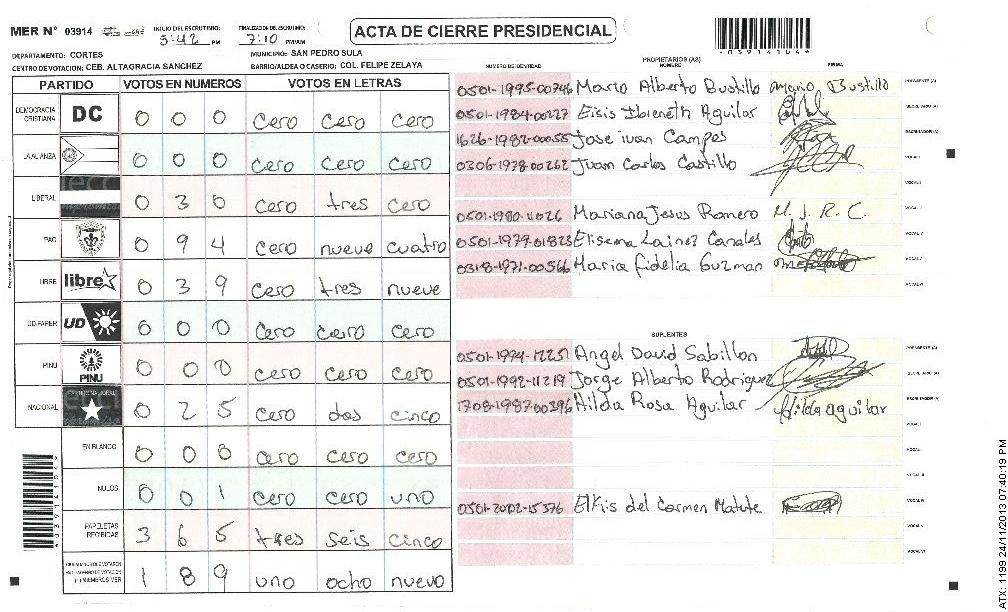 MER N° 03914
INICIO DEL ESCRUTINIO: 5:42 PM
FINALIZACION DEL ESCRUTINIO: 7:10 PM/AM
ACTA DE CIERRE PRESIDENCIAL
DEPARTAMENTO: CORTES
MUNICIPIO: SAN PEDRO SULA
CENTRO DE VOTACION: CEB. ALTAGRACIA SANCHEZ
BARRIO/ALDEA O CASERIO: COL. FELIPE ZELAYA
PARTIDO VOTOS EN NUMEROS VOTOS EN LETRAS
DEMOCRACIA CRISTIANA DC 0 0 0 Cero Cero Cero
LA ALIANZA 0 0 0 Cero Cero Cero
LIBERAL 0 3 0 Cero tres Cero
PAC 0 9 4 Cero nueve cuatro
LIBRE libre 0 3 9 Cero tres nueve
UD-FAPER UD 0 0 0 Cero Cero Cero
PINU PINU 0 0 0 Cero Cero Cero
NACIONAL 0 2 5 Cero dos cinco
EN BLANCO 0 0 0 Cero Cero Cero
NULOS 0 0 1 Cero Cero uno
PAPELETAS RECIBIDAS 3 6 5 tres seis cinco
1 8 9 uno ocho nueve
NUMERO DE IDENTIDAD
PROPIETARIOS (AS)
NOMBRE
FIRMA
0501-1995-00746 Mario Alberto Bustillo Mario Bustillo PRESIDENTE (A)
0501-1984-00227 Eisis Ibieneth Aguilar SECRETARIO (A)
1626-1982-00055 Jose ivan Campos ESCRUTADOR (A)
0306-1978-00262 Juan Carlos Castillo VOCAL I
VOCAL II
0501-1980-11026 Mariana Jesus Romero M. J. R. C.
0501-1979-01823 Elisema Lainez Canales
0318-1971-00566 Maria fidelia Guzman
SUPLENTES
0501-1994-12251 Angel David Sabillon PRESIDENTE (A)
0501-1992-11219 Jorge Alberto Rodriguez SECRETARIO (A)
1708-1987-00396 Hilda Rosa Aguilar Hilda aguilar ESCRUTADOR (A)
VOCAL I
VOCAL II
VOCAL III
0501-2002-15376 Elkis del Carmen Matute VOCAL IV
VOCAL V
VOCAL VI
ATX: 1199 24/11/2013 07:40:19 PM